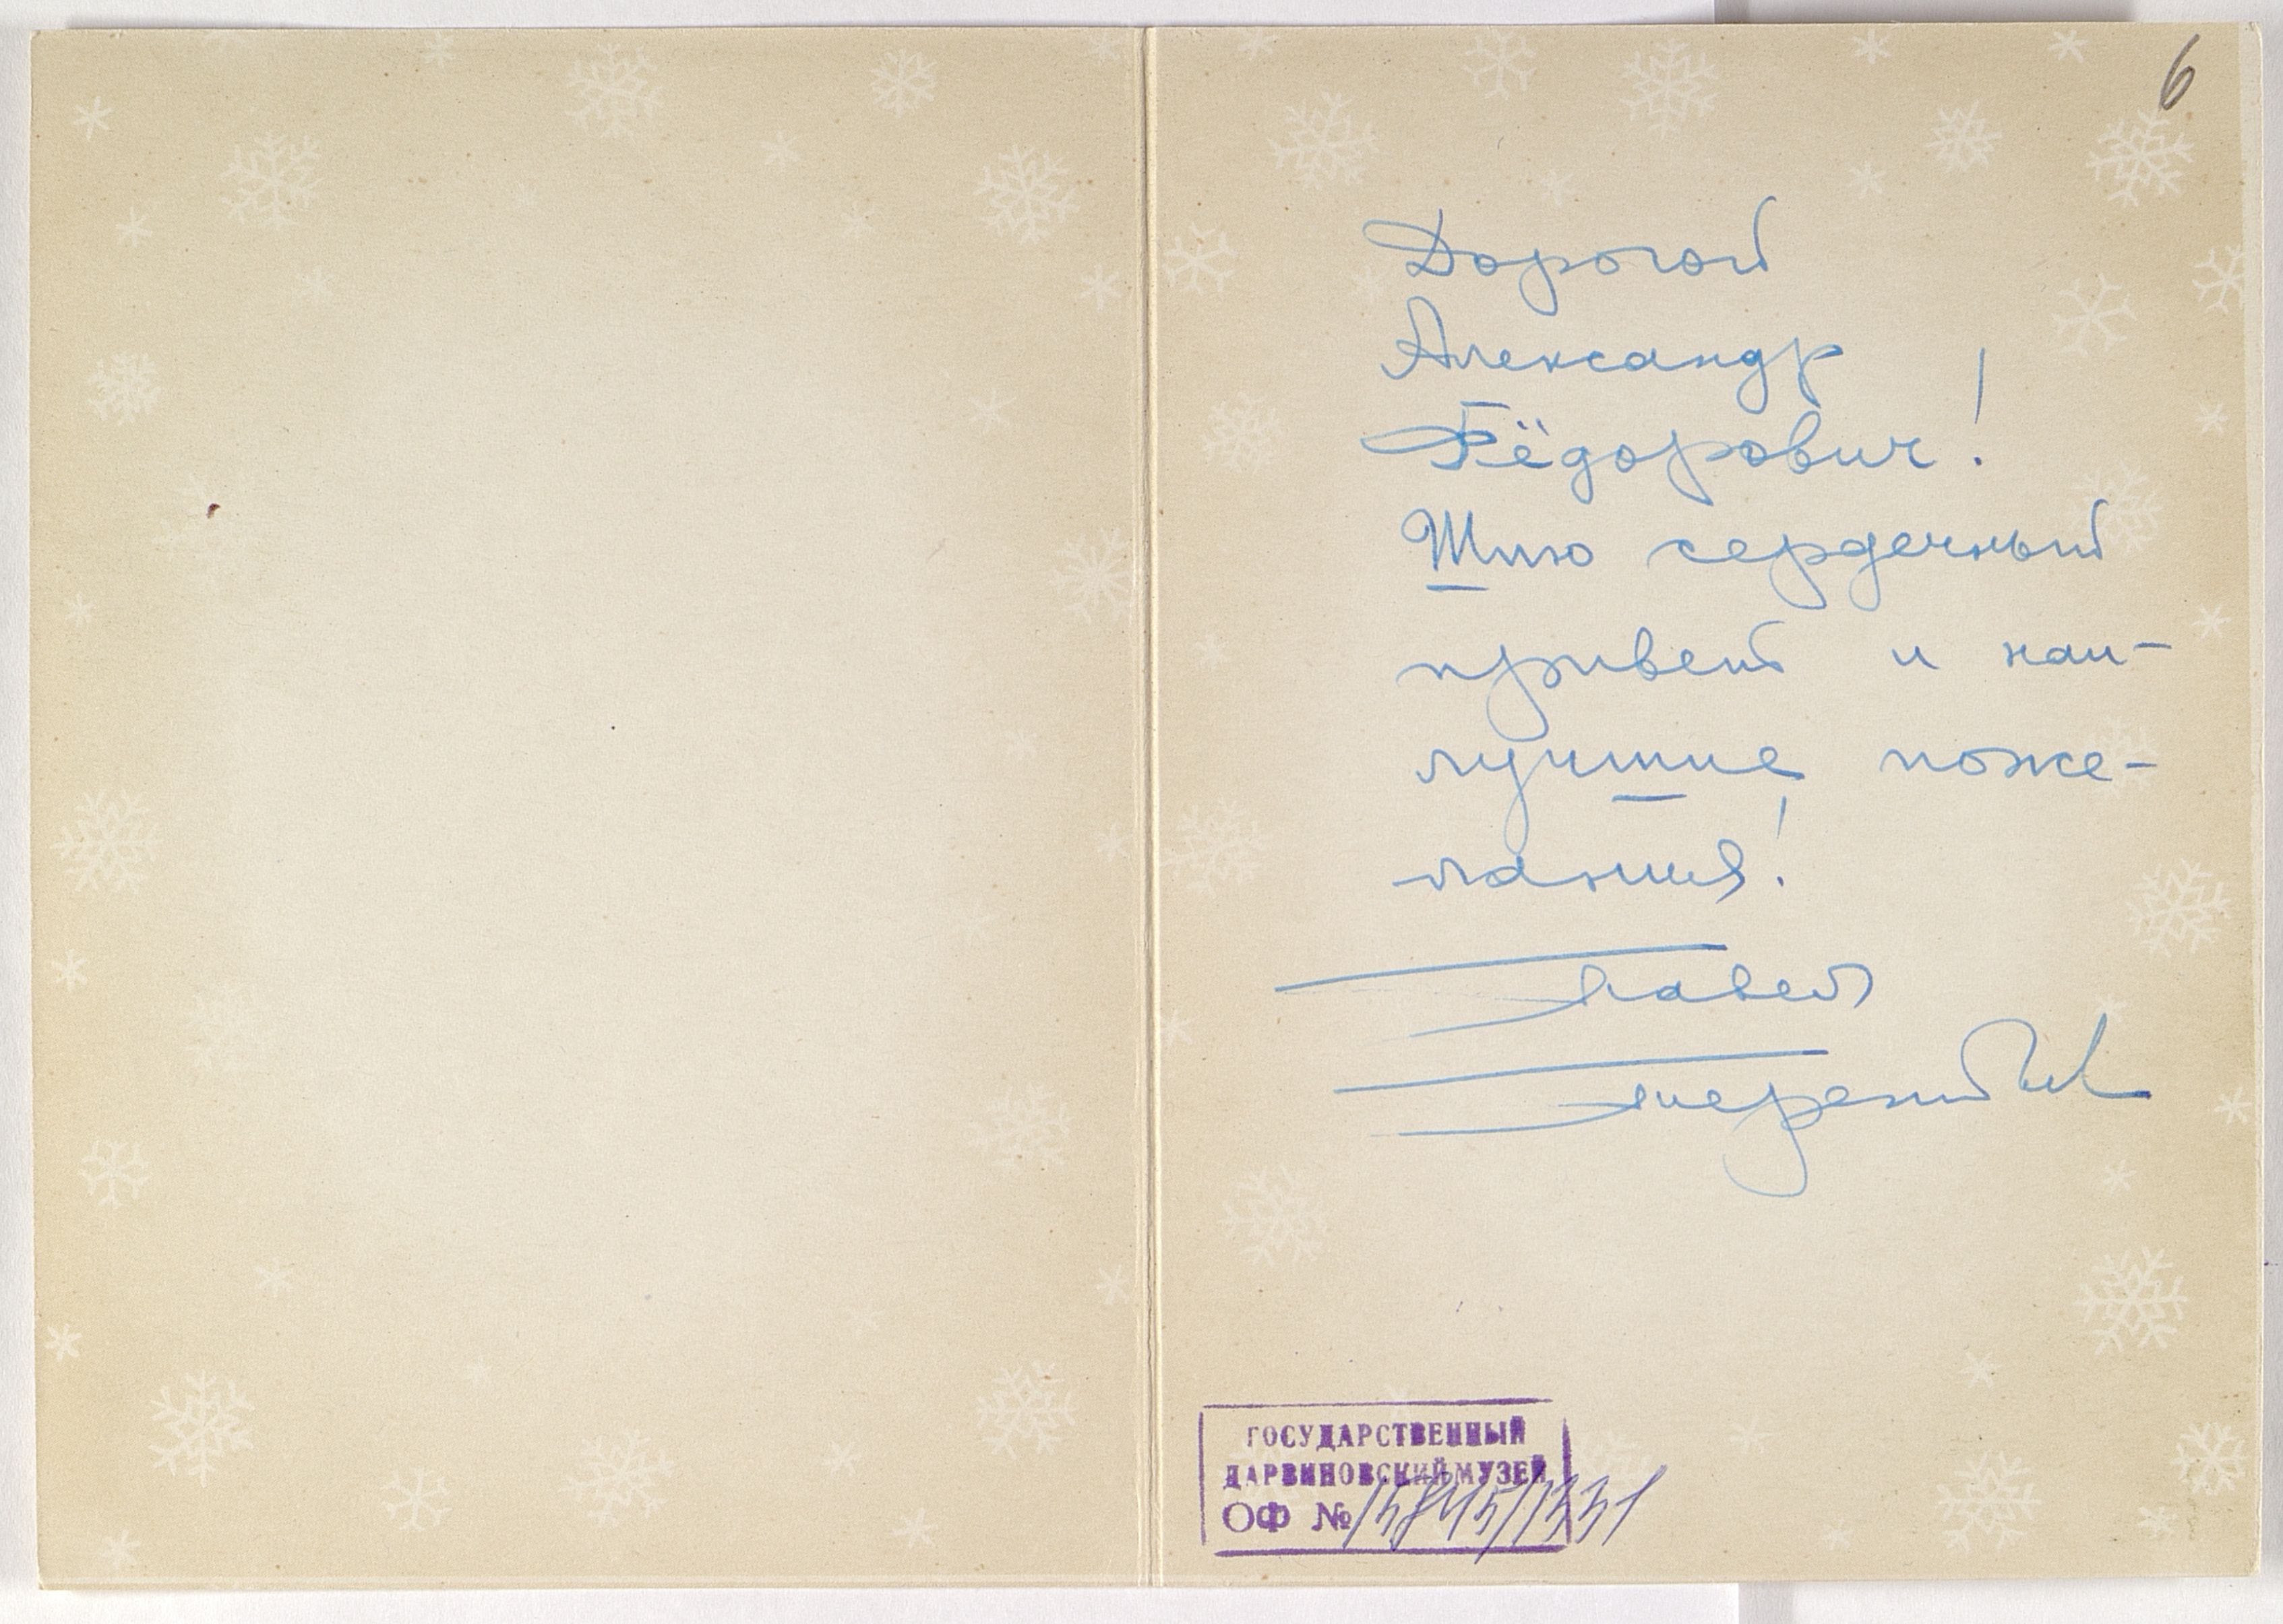 6
Дорогой
Александр
Фёдорович!
Шлю сердечный
привет и наи-
лучшие поже-
лания!
Павел
Терентьев
ГОСУДАРСТВЕННЫЙ
ДАРВИНОВСКИЙ МУЗЕЙ
ОФ №